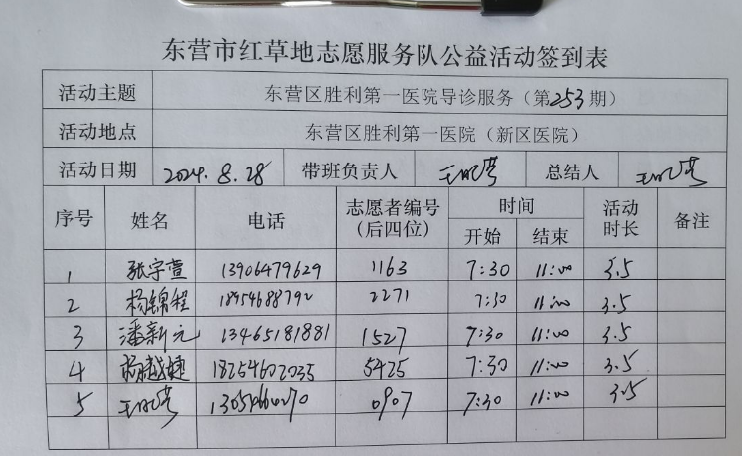 东营市红草地志愿服务队公益活动签到表
活动主题 东营区胜利第一医院导诊服务（第253期）
活动地点 东营区胜利第一医院（新区医院）
活动日期 2024.8.28 带班负责人 总结人
序号 姓名 电话 志愿者编号（后四位） 时间 开始 结束 活动时长 备注
1 张宇萱 13906479629 1163 7:30 11:00 3.5
2 杨锦程 18954688792 2271 7:30 11:00 3.5
3 潘新元 13465181881 1527 7:30 11:00 3.5
4 杨越捷 18254602035 5425 7:30 11:00 3.5
5 0907 7:30 11:00 3.5